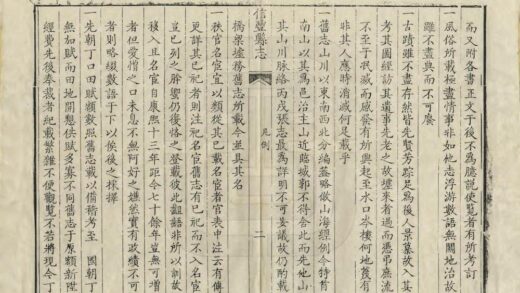 而又附各書正文于後不為臆說使覽者有所考訂
一風俗所載極盡情事非如他志浮游數語無關地治故
雖不盡典而不可廢
一古蹟雖不盡存然皆先賢芳踪足為後人景慕故入其
考其圖經訪其遺事先老之故壠來者過而憑弔庶流
不至于泯滅而感發有所興起至水口岑樓何地蔑有
非其人應時消滅何足載乎
一舊志山川以東南西北分編蓋略倣山海經例今特首
南山以其為邑治主山近臨城郭不得舍此而先他山
其山川脉絡丙戌張志最為詳明不可妄議故仍酌載
信豐縣志
凡例
二
橋梁墟務舊志所載今並具其名
一秩官名宦宜以類從其已載名宦者官表中注云有傳
更詳其已祀者則注祀名宦舊志有已祀而不入名宦
豈已列之肸饗仍復恪之登載彼此齟齬非所以訓故
稷入且名宦自康熙十三年距今七十餘年豈無可增
者但愛憎之口未息不無阿好之嫌然實有政績不可
者則略綴數語于下以俟後之採擇
一先朝丁口田賦額數照舊志載以備稽考至 國朝丁
無加賦而田地開懇供賦多寡不同舊志于原額新陞
經費先後奉裁者紀載繁雜不便觀覽不若將現今丁